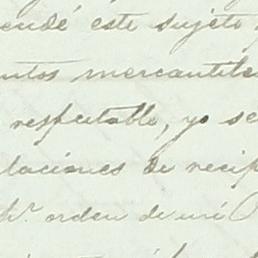 endé este sujeto
ntos mercantile
respetable, yo se
laciones de recip
h.ª orden de mi